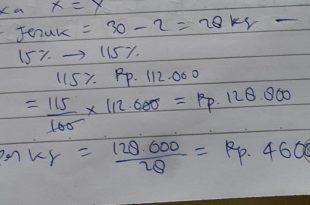 x = x
Jeruk = 30 - 2 = 28 kg -
15% → 115%
115% Rp. 112.000
= 115/100 x 112.000 = Rp. 128.800
kg = 128.800/28 = Rp. 4600